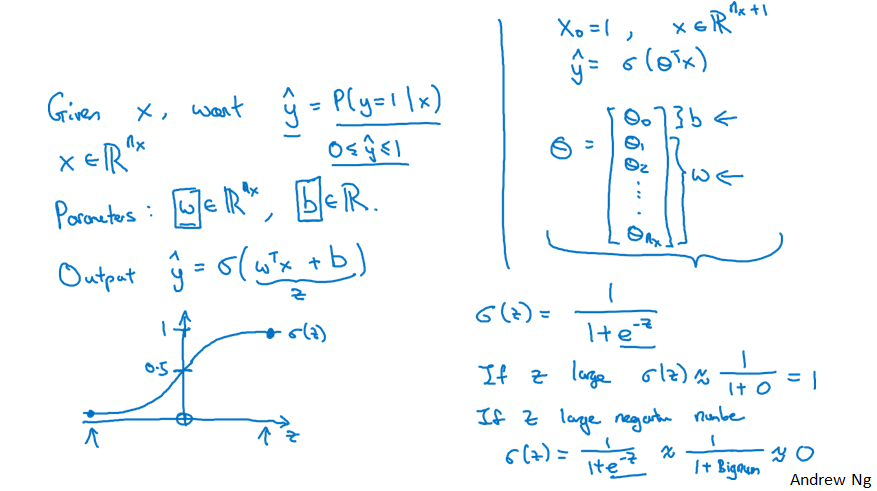 Given x, want ŷ = P(y=1|x)
x ∈ ℝⁿˣ
0 ≤ ŷ ≤ 1
Parameters: w ∈ ℝⁿˣ, b ∈ ℝ.
Output ŷ = σ(wᵀx + b)
z
1
σ(z)
0.5
z
X₀ = 1, x ∈ ℝⁿˣ⁺¹
ŷ = σ(θᵀx)
θ = [θ₀ } b ←
θ₁
θ₂ } w ←
⋮
θₙₓ]
σ(z) = 1 / (1 + e⁻ᶻ)
If z large σ(z) ≈ 1 / (1 + 0) = 1
If z large negative number
σ(z) = 1 / (1 + e⁻ᶻ) ≈ 1 / (1 + Bignum) ≈ 0
Andrew Ng